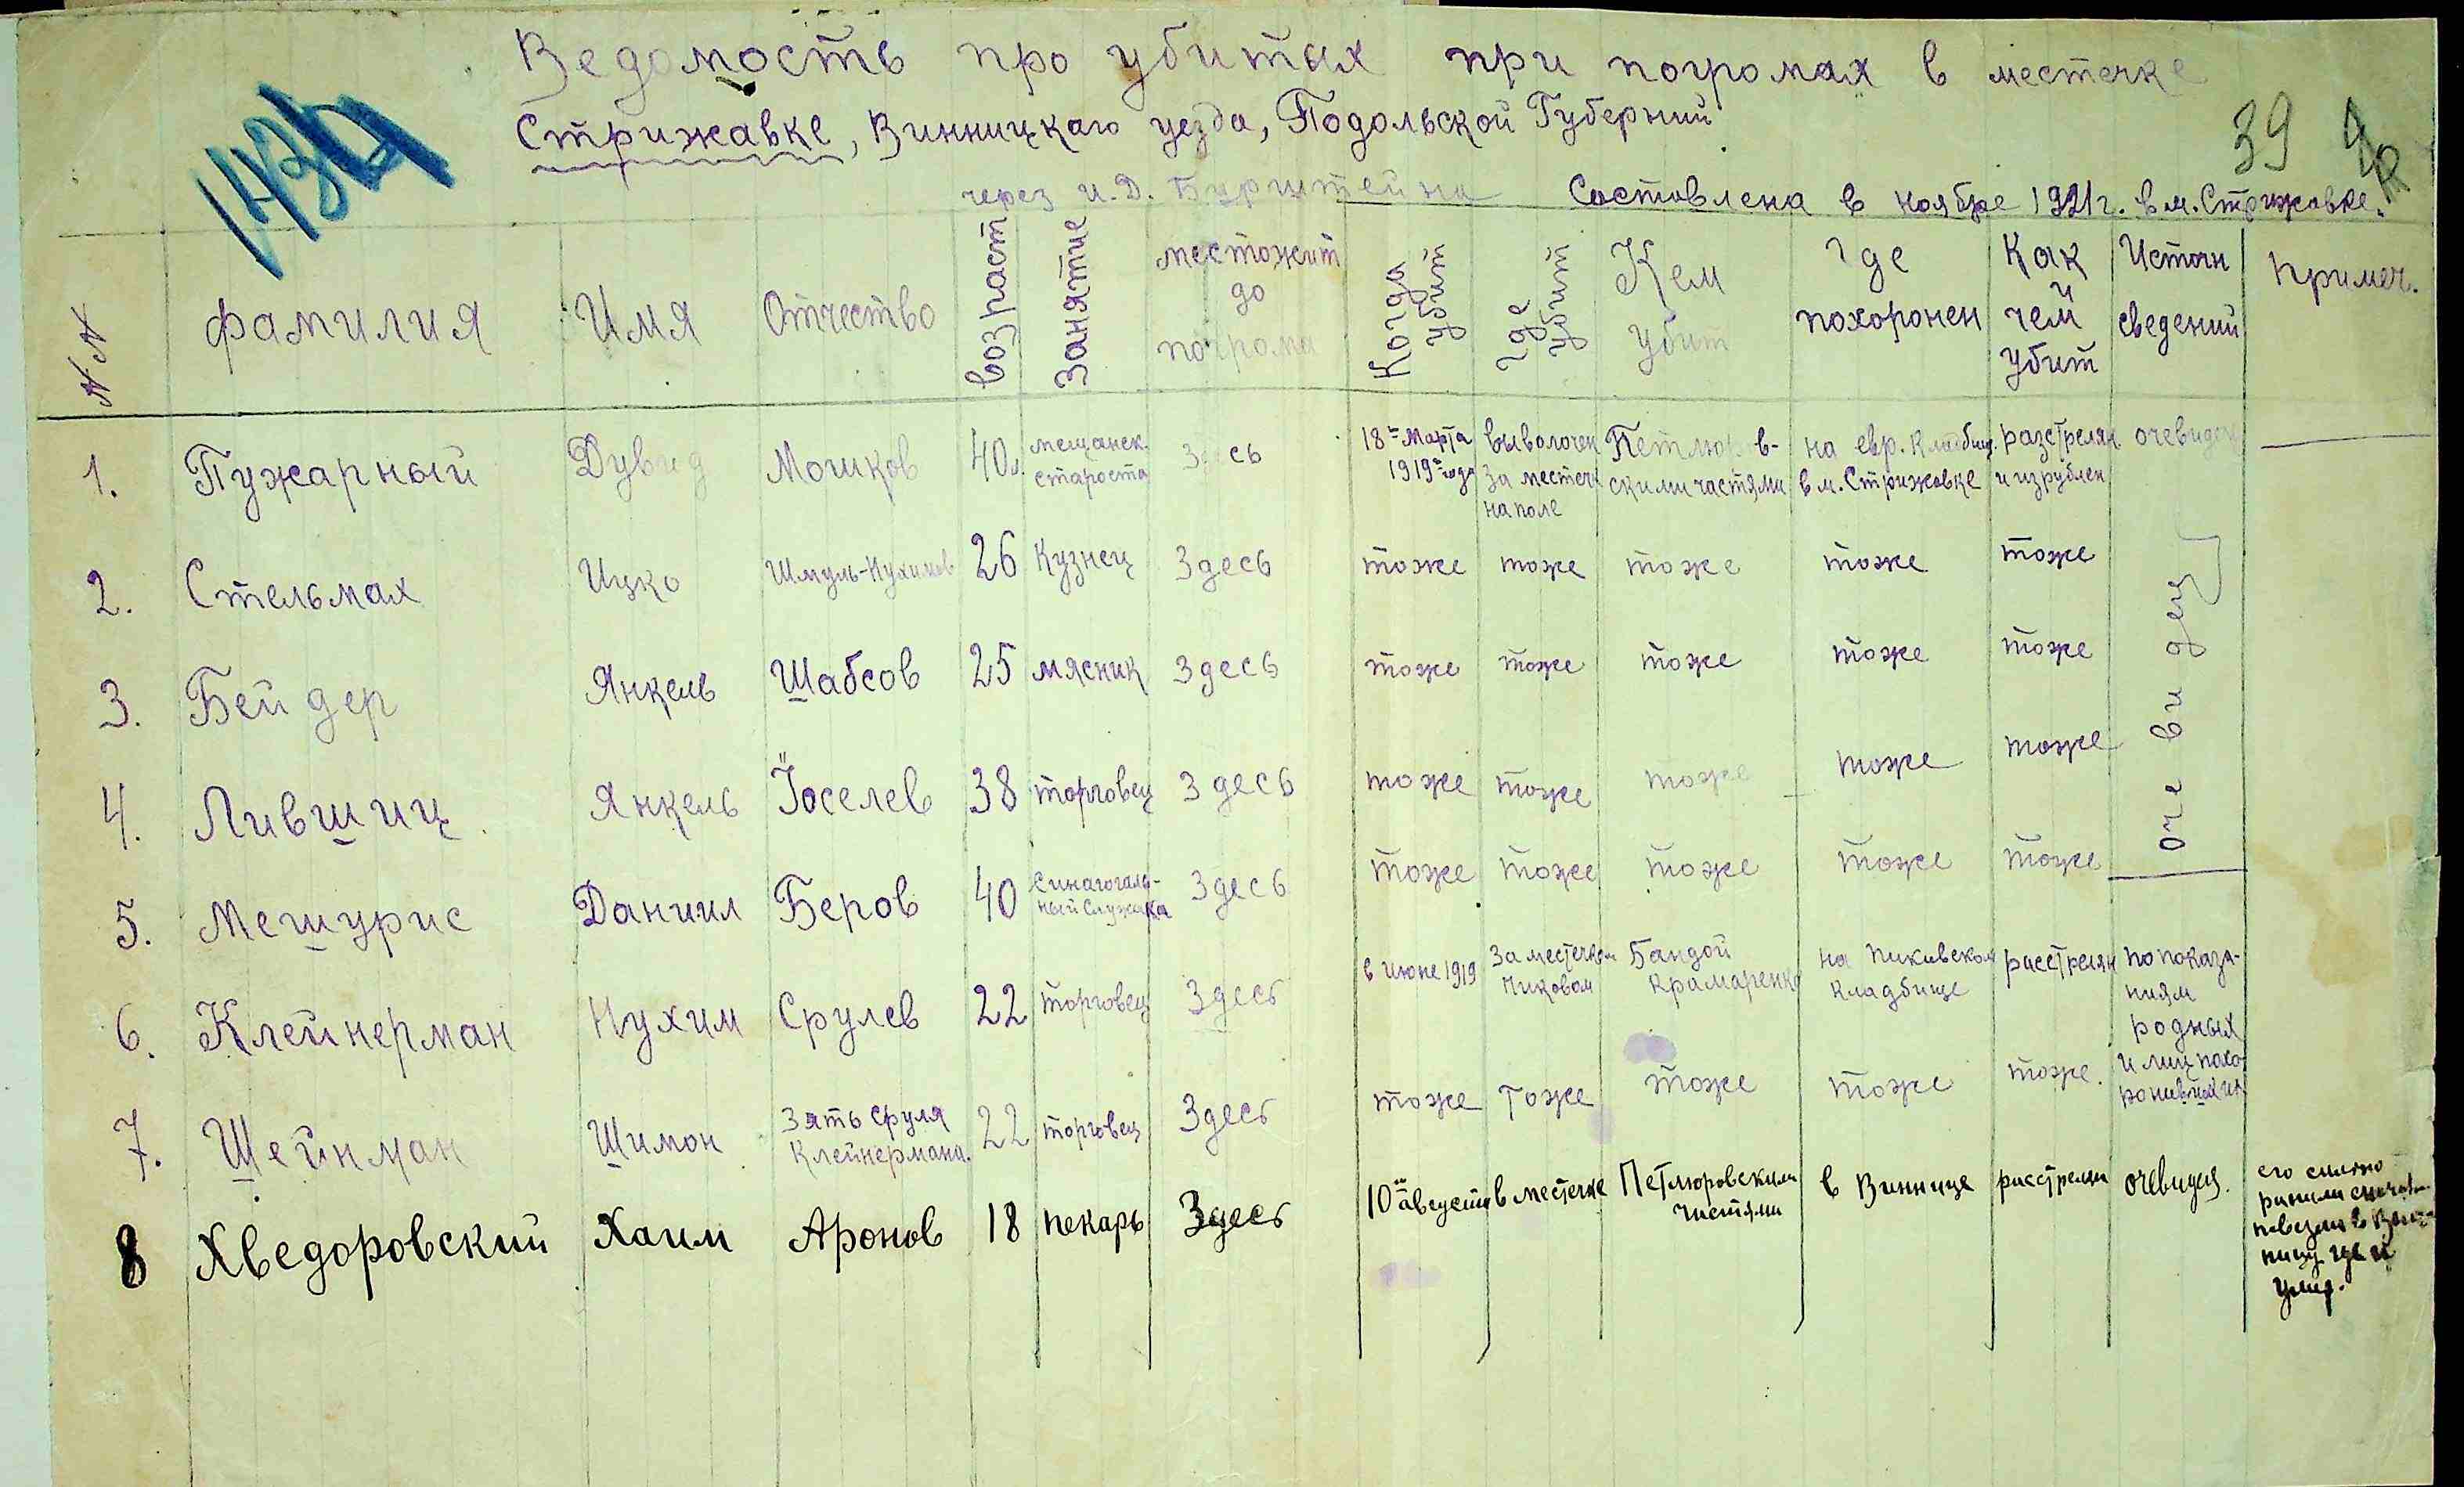 Ведомость про убитых при погромах в местечке
Стрижавке, Винницкаго уезда, Подольской Губернии
39
через И. Д. Бурштейна Составлена в ноябре 1921 г. в м. Стрижавке.
N N фамилия Имя Отчество возраст Занятие местожит до погрома Когда убит где убит Кем убит где похоронен Как и чем убит Источн сведений Примеч.
1. Пужарный Дувид Мошков 40 л. мещанск. староста здесь 18го Марта 1919го года выволочен за местечк на поле Петлюровскими частями на евр. кладбищ. в м. Стрижавке разстрелян и изрублен очевидец
2. Стельмах Ицко Шмуль-Нухимов 26 Кузнец Здесь тоже тоже тоже тоже тоже
3. Бейдер Янкель Шабсов 25 мясник Здесь тоже тоже тоже тоже тоже
очевидец
4. Лившиц Янкель Йоселев 38 торговец Здесь тоже тоже тоже тоже тоже
5. Мешурис Даниил Беров 40 синагогальный служака Здесь тоже тоже тоже тоже тоже
6. Клейнерман Нухим Срулев 22 торговец Здесь в июне 1919 За местечком Пиковом Бандой Крамаренко на Пикивском кладбище расстрелян по показаниям родных и лиц похоронивших их
7. Шейнман Шимон Зять Сруля Клейнермана. 22 торговец Здесь тоже тоже тоже тоже тоже.
8 Хведоровский Хаим Аронов 18 пекарь Здесь 10го августа в местечке Петлюровскими частями в Виннице расстрелян очевидец. его сильно ранили сначала повезли в Винницу где и умер.